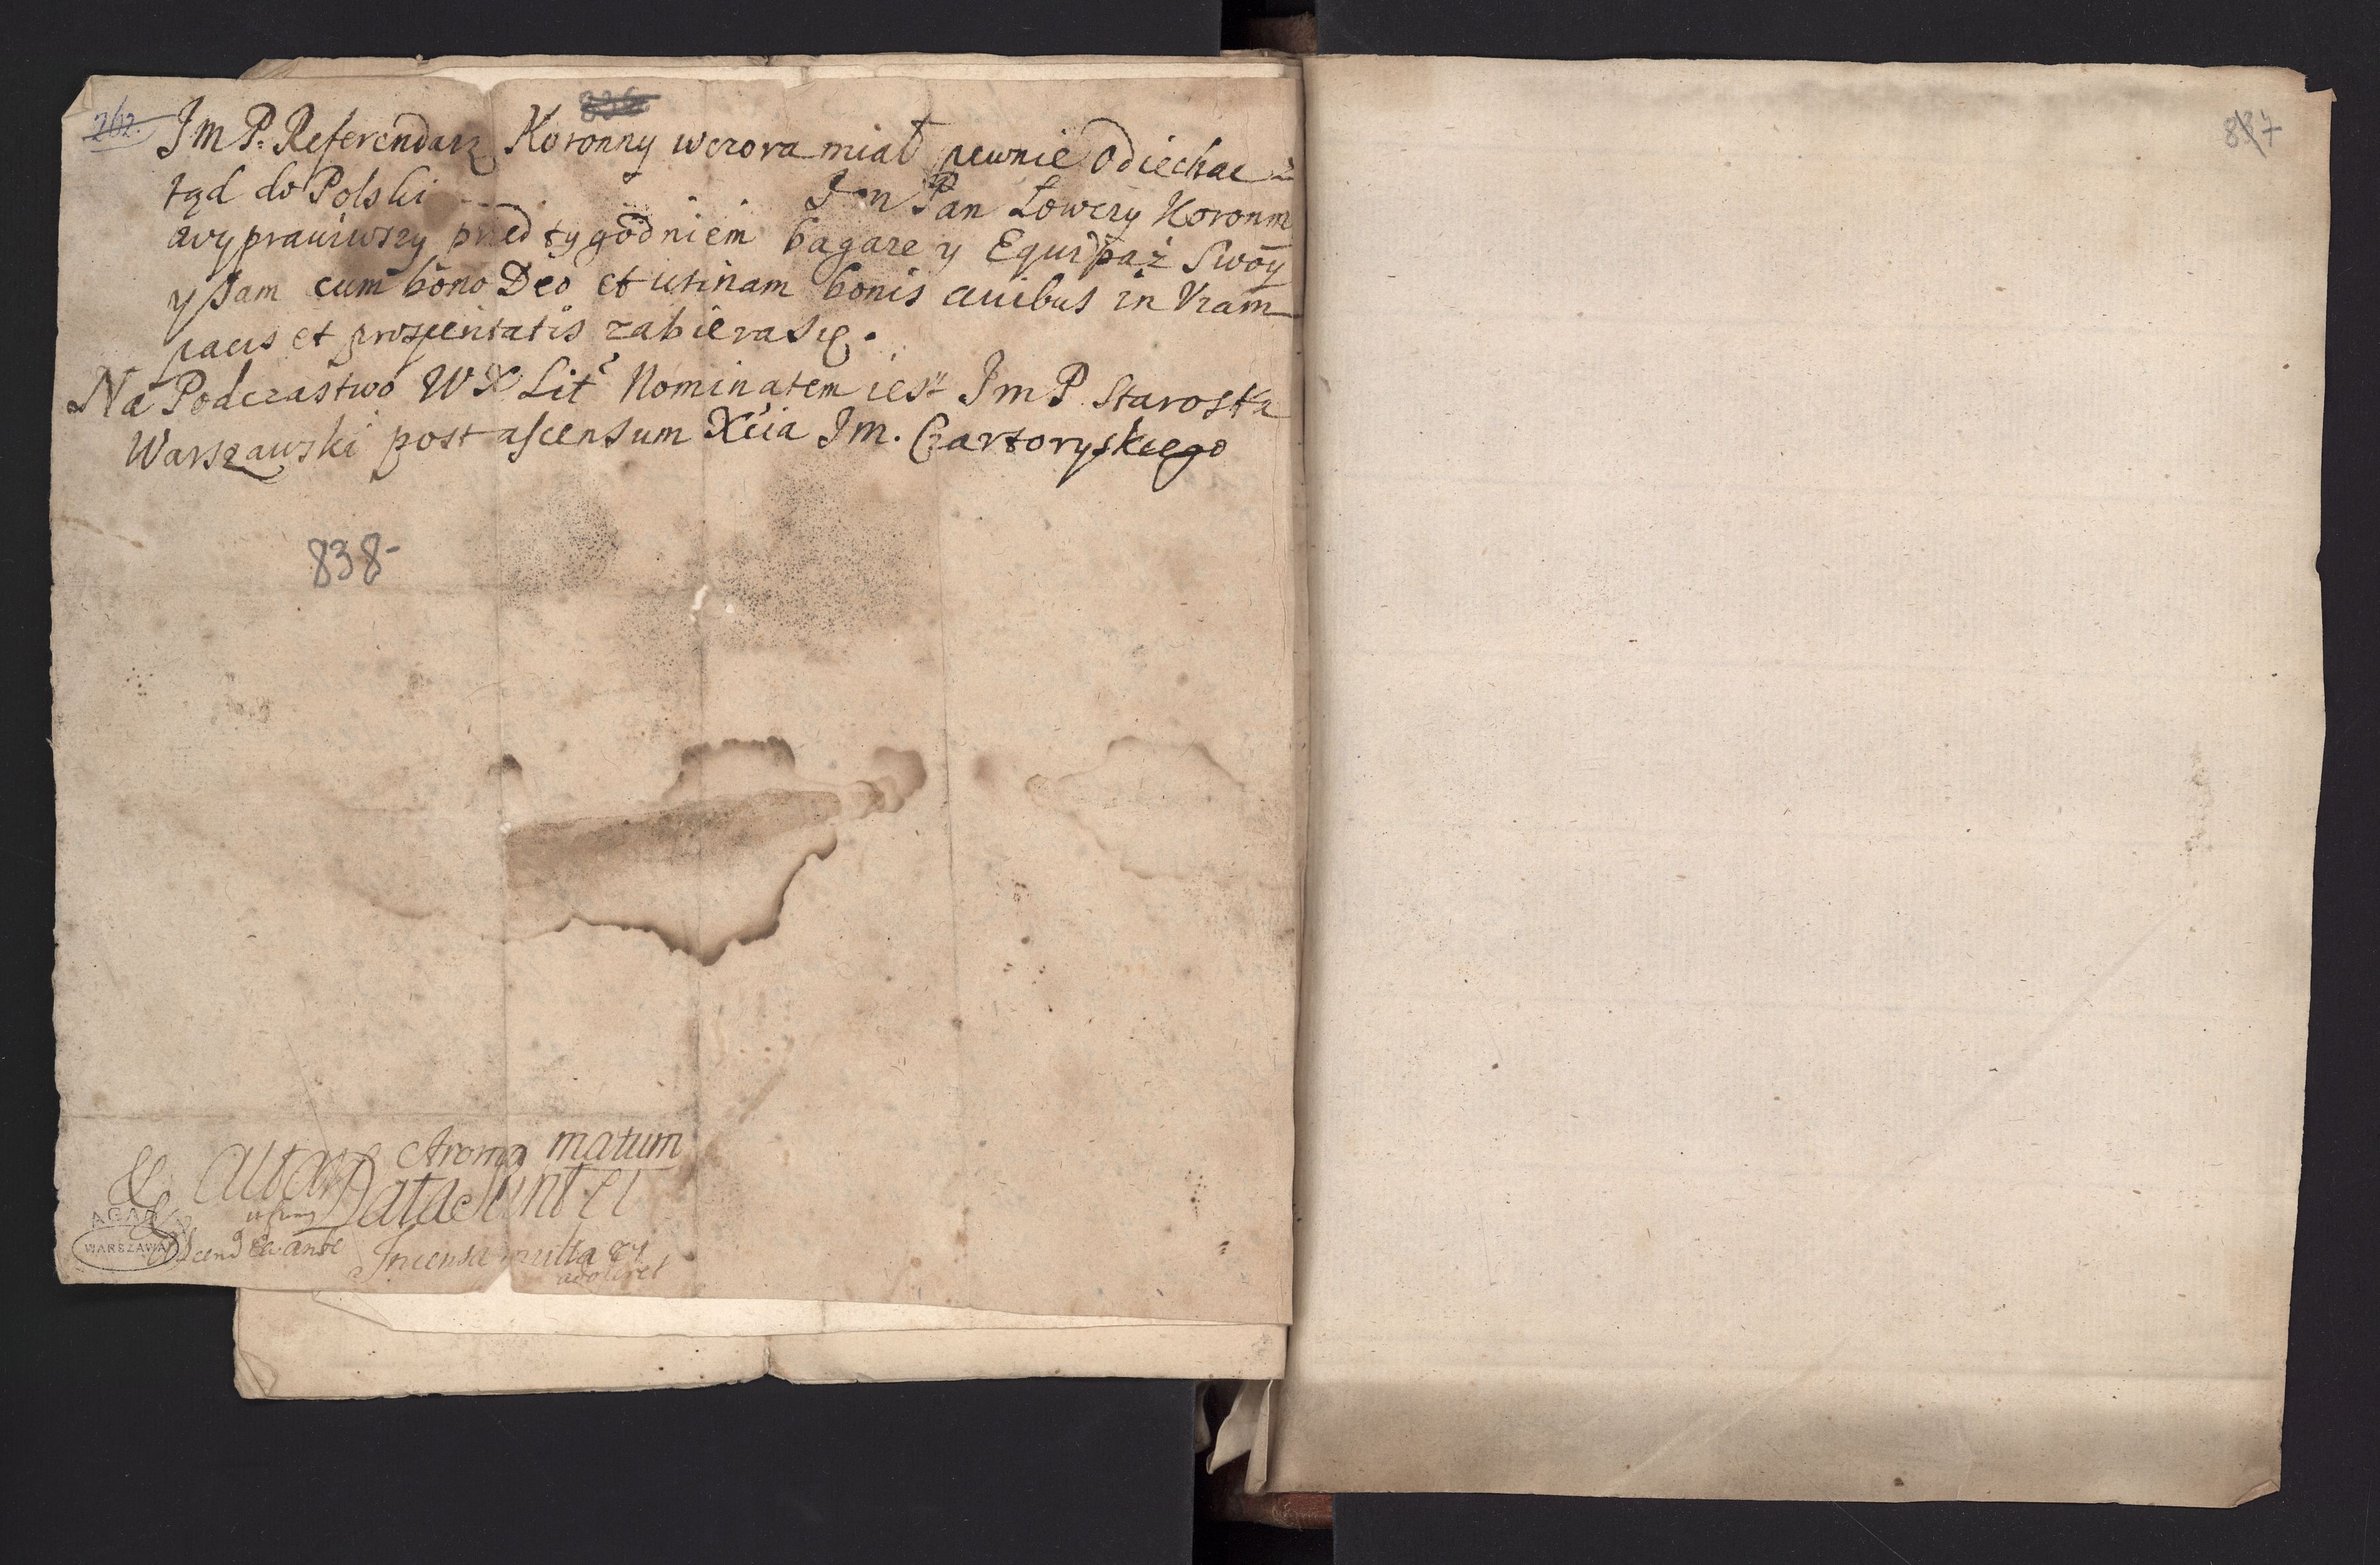 262.
836
Jm P. Referendarz Koronny wczora miał pewnie odiechac z
tąd do Polski
Jm Pan Łowczy Koronny
wyprawiwszy przed tygodniem bagaze y Equipaż Swoy
y sam cum bono Deo et utinam bonis avibus in Viam
pacis et prosperitatis zabiera się.
Na Podczastwo WX Lit. Nominatem iest Jm P. Starosta
Warszawski post ascensum Xcia Jm. Czartoryskiego
838-
Aroma matum
& altare
Data Sunt ei
ante
Incensa multa
adoleret
AGAD
WARSZAWA
837